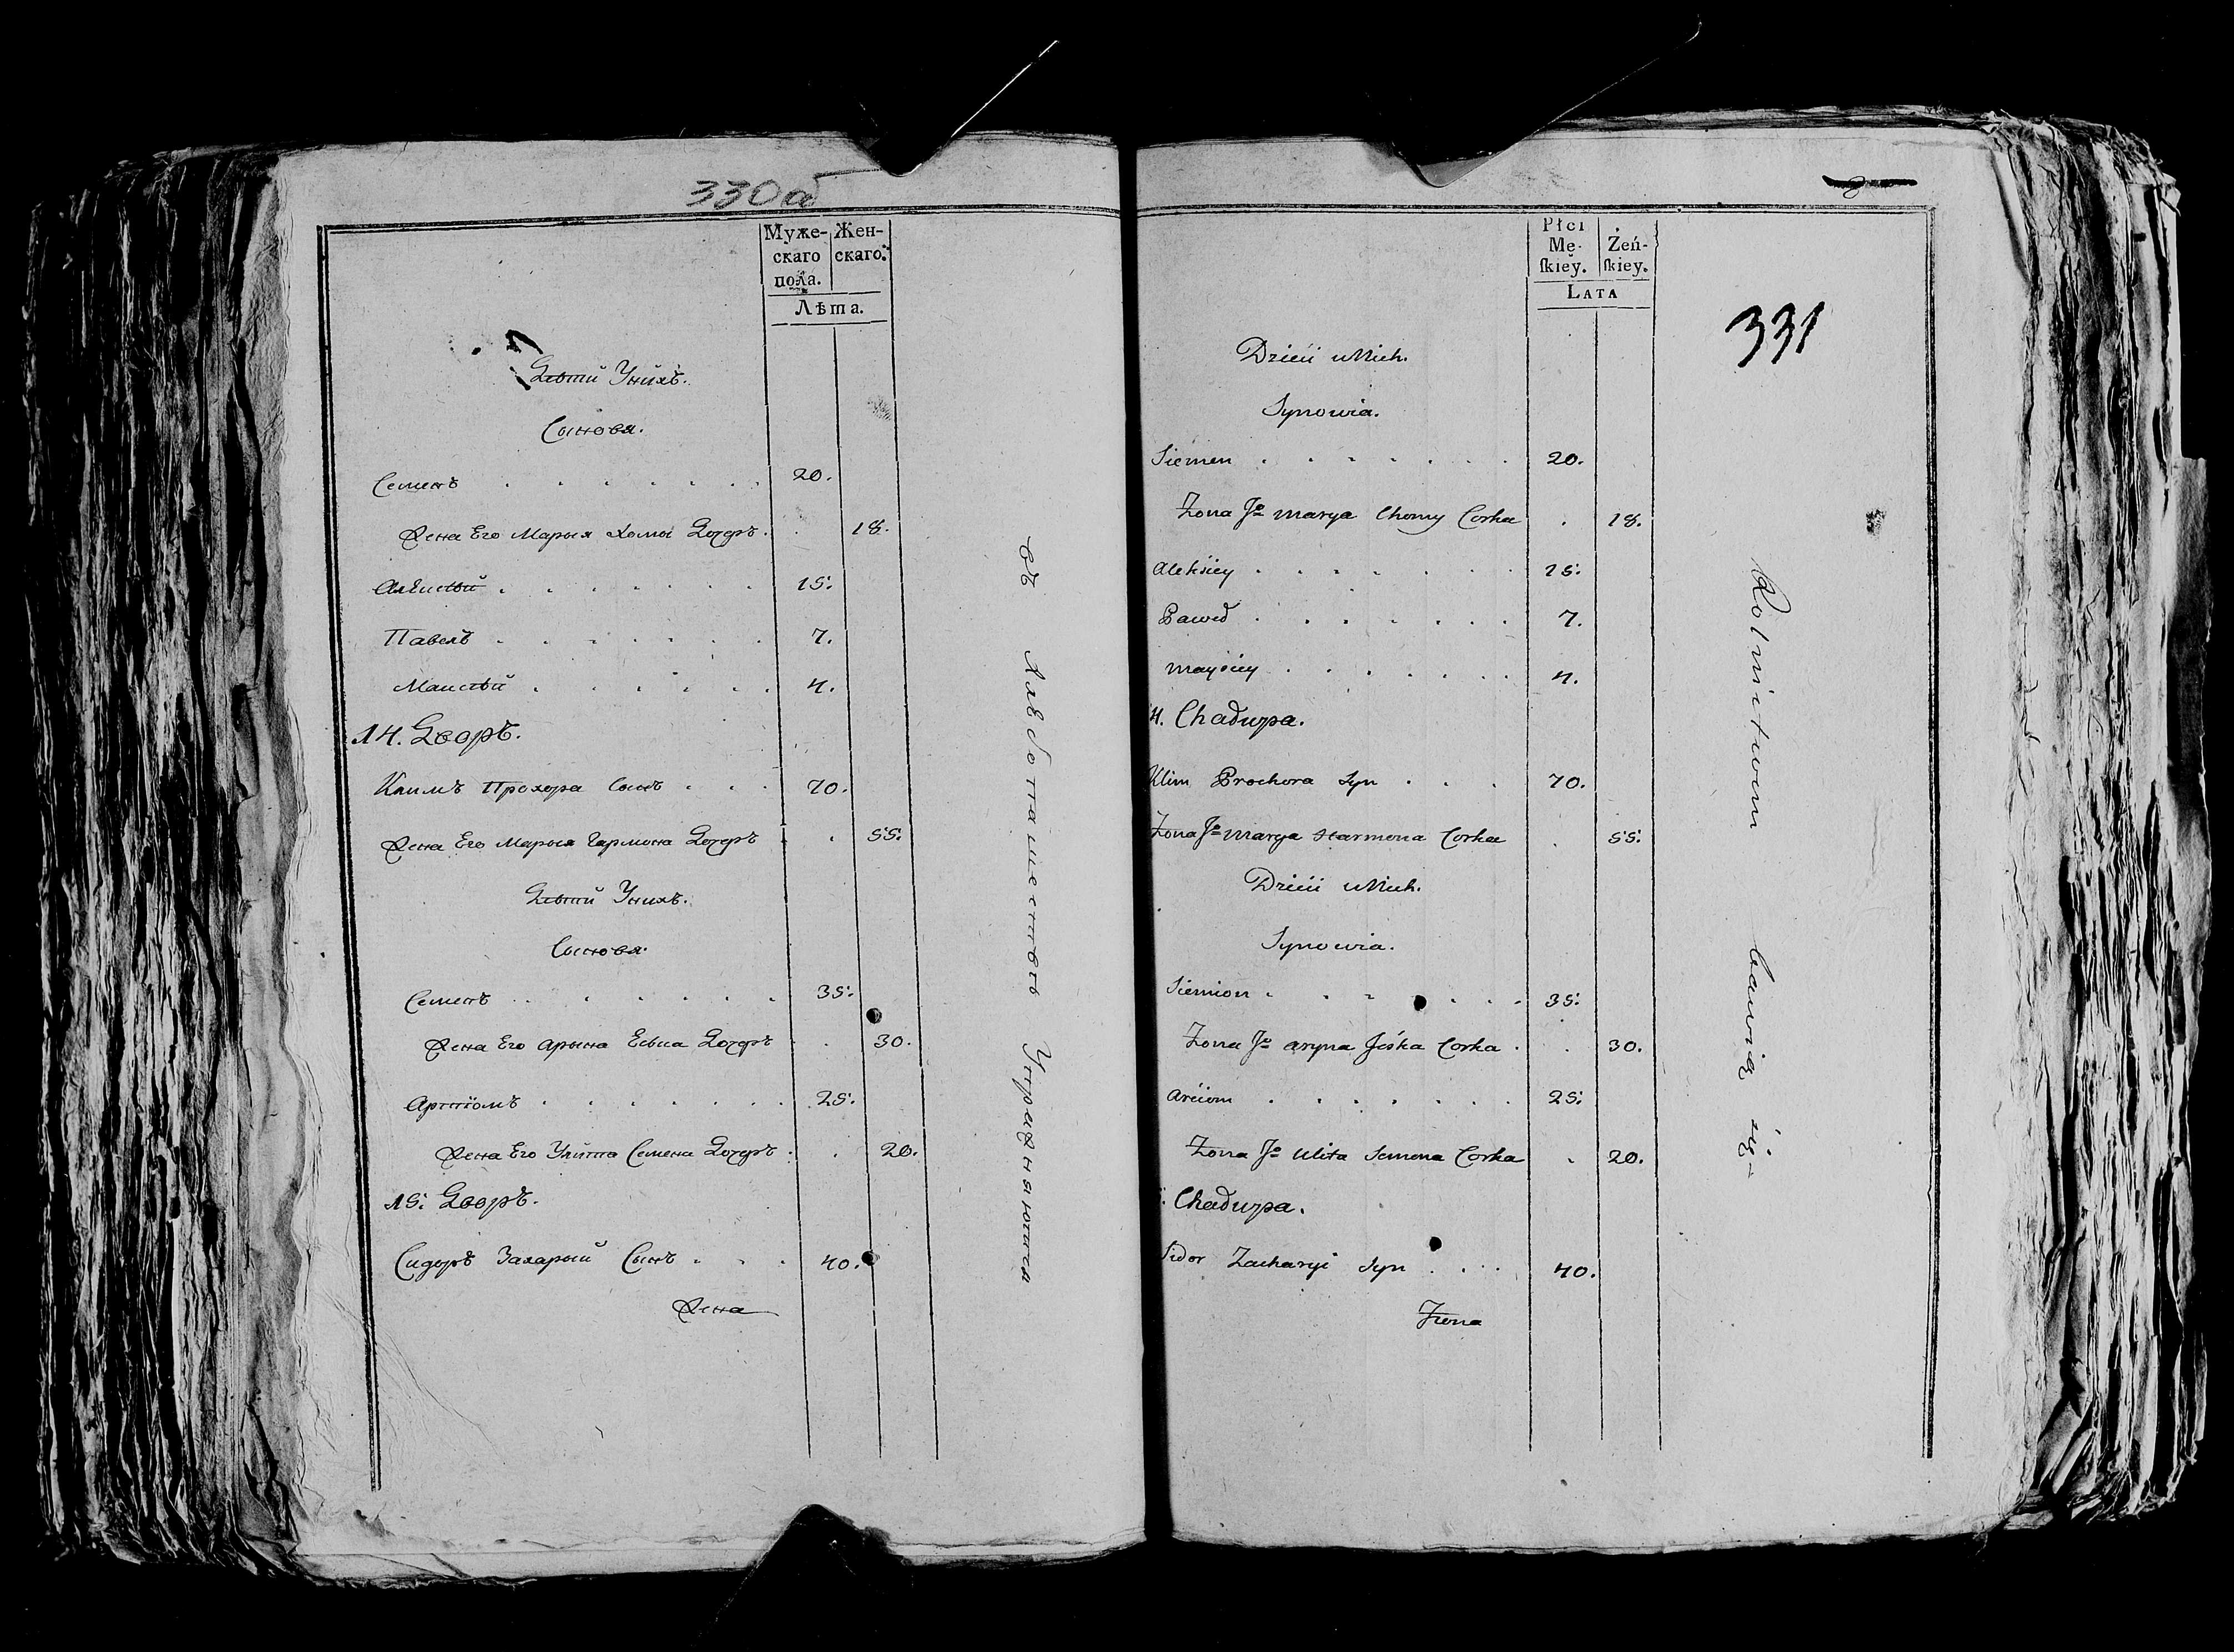 330а
Муже-
скаго
пола.
Жен-
скаго.
Лѣта.
Дѣтй Унйхъ.
Сыновя.
Семенъ . . . . . . . 20.
Жена Его Марыя Хомы Дочеръ . . 18.
Алексѣй . . . . . . . 15.
Павелъ . . . . . . . 7.
Маисѣй . . . . . . 4.
14. Дворъ.
Климъ Прохора Сынъ . . . 70.
Жена Его Марыя Гармона Дочеръ . . 55.
Дѣтй Унихъ.
Сыновя.
Семенъ . . . . . . . 35.
Жена Его Арына Еська Дочеръ . . 30.
Артіомъ . . . . . . . 25.
Жена Его Улита Семена Дочеръ . . 20.
15. Дворъ.
Сидоръ Захарый Сынъ . . . 40.
Жена
съ Хлѣбопашествъ Упражняются
331
Płci
Mę-
ſkieỹ.
Żeń-
ſkiey.
LATA
Dzieci u Nich.
Synowia.
Siemen . . . . . . . 20.
Żona Jº Marya Chomy Corka . 18.
Alexsiey . . . . . . . 15.
Paweł . . . . . . . 7.
Maysiey . . . . . . 4.
4. Chałupa.
Klim Prochora Syn . . . 70.
Żona Jº Marya Harmona Corka . 55.
Dzieci u Nich.
Synowia.
Siemion . . . . . . . 35.
Żona Jº Aryna Jeśka Corka . . 30.
Arciom . . . . . . . 25.
Żona Jº Ulita Semena Corka . 20.
. Chałupa.
Sidor Zacharyi Syn . . . 40.
Żona
Rolnictwem bawią się